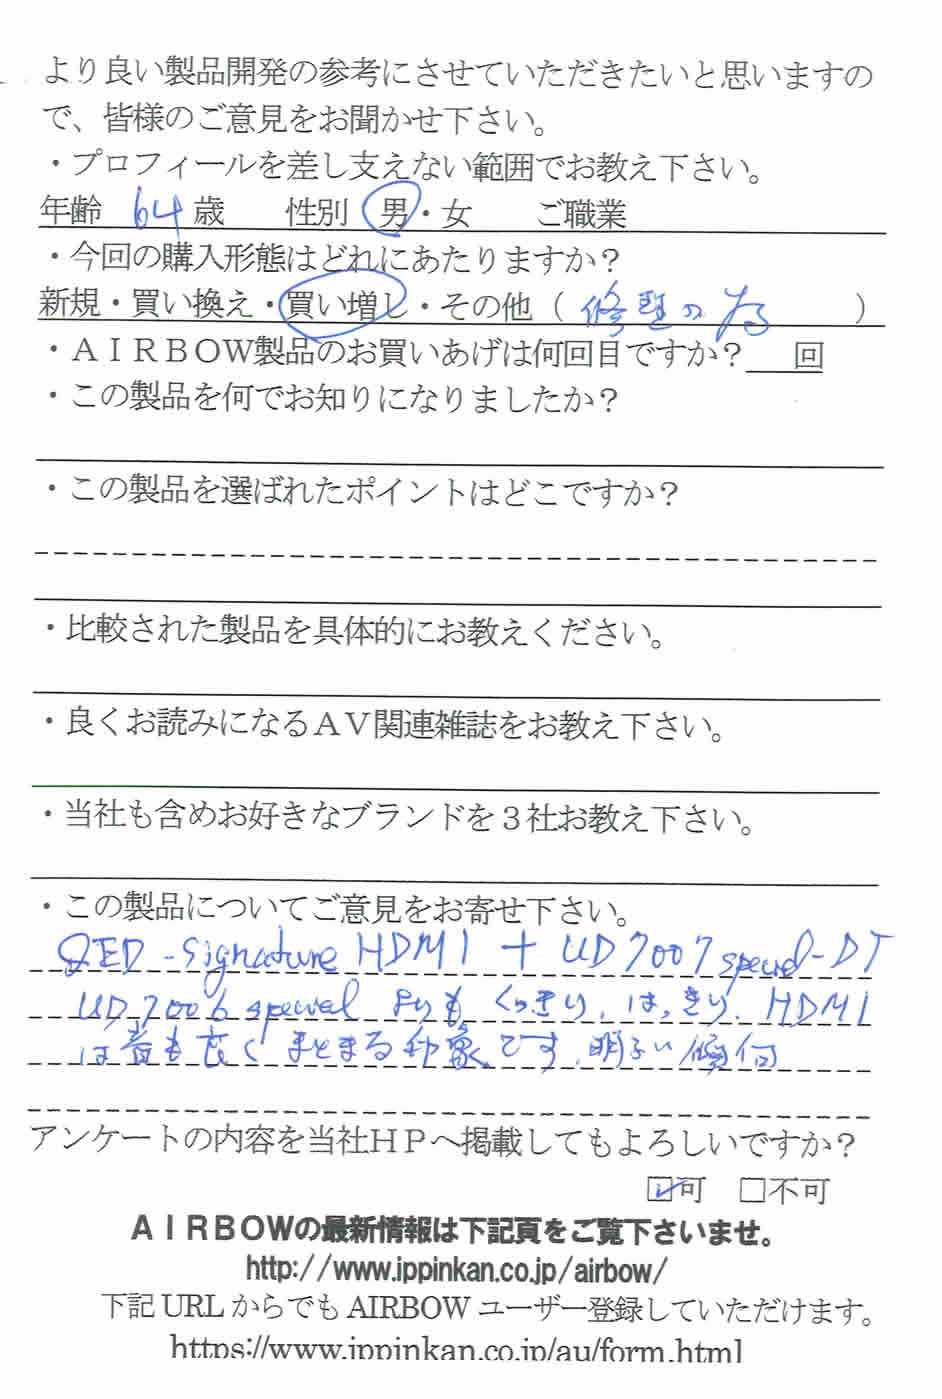 より良い製品開発の参考にさせていただきたいと思いますの
で、皆様のご意見をお聞かせ下さい。
・プロフィールを差し支えない範囲でお教え下さい。
年齢 64 歳 性別 男・女 ご職業
・今回の購入形態はどれにあたりますか？
新規・買い換え・買い増し・その他（ 修理の為 ）
・ＡＩＲＢＯＷ製品のお買いあげは何回目ですか？＿回
・この製品を何でお知りになりましたか？
・この製品を選ばれたポイントはどこですか？
・比較された製品を具体的にお教えください。
・良くお読みになるＡＶ関連雑誌をお教え下さい。
・当社も含めお好きなブランドを３社お教え下さい。
・この製品についてご意見をお寄せ下さい。
QED-Signature HDMI + UD7007 -DT
UD7006 special よりも くっきり、はっきり、HDMI
は音も良く まとまる印象です、明るい傾向
アンケートの内容を当社ＨＰへ掲載してもよろしいですか？
☑可 □不可
ＡＩＲＢＯＷの最新情報は下記頁をご覧下さいませ。
http://www.ippinkan.co.jp/airbow/
下記 URL からでも AIRBOW ユーザー登録していただけます。
https://www.ippinkan.co.jp/au/form.html